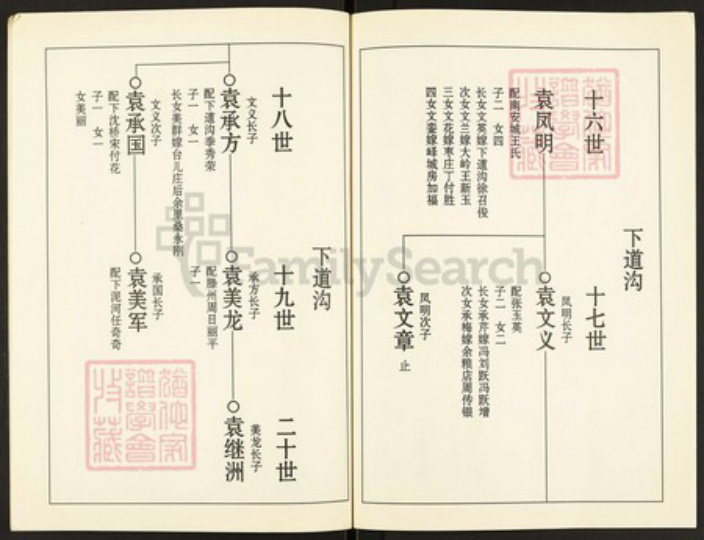 下道沟
十六世
袁凤明
配南安城王氏
子二 女四
长女文英嫁下道沟徐召俊
次女文兰嫁大岭王新玉
三女文花嫁枣庄丁付胜
四女文銮嫁峄城房加福
十七世
袁文义
凤明长子
配张玉英
子二 女二
长女承芹嫁冯刘跃冯跃增
次女承梅嫁余粮店周传银
袁文章
凤明次子
止
下道沟
十八世
袁承方
文义长子
配下道沟季秀荣
子一 女一
长女美群嫁台儿庄后余里桑永刚
袁承国
文义次子
配下沈桥宋付花
子一 女一
女美丽
十九世
袁美龙
承方长子
配滕州周日丽平
子一
袁美军
承国长子
配下泥河任奇奇
二十世
袁继洲
美龙长子
FamilySearch